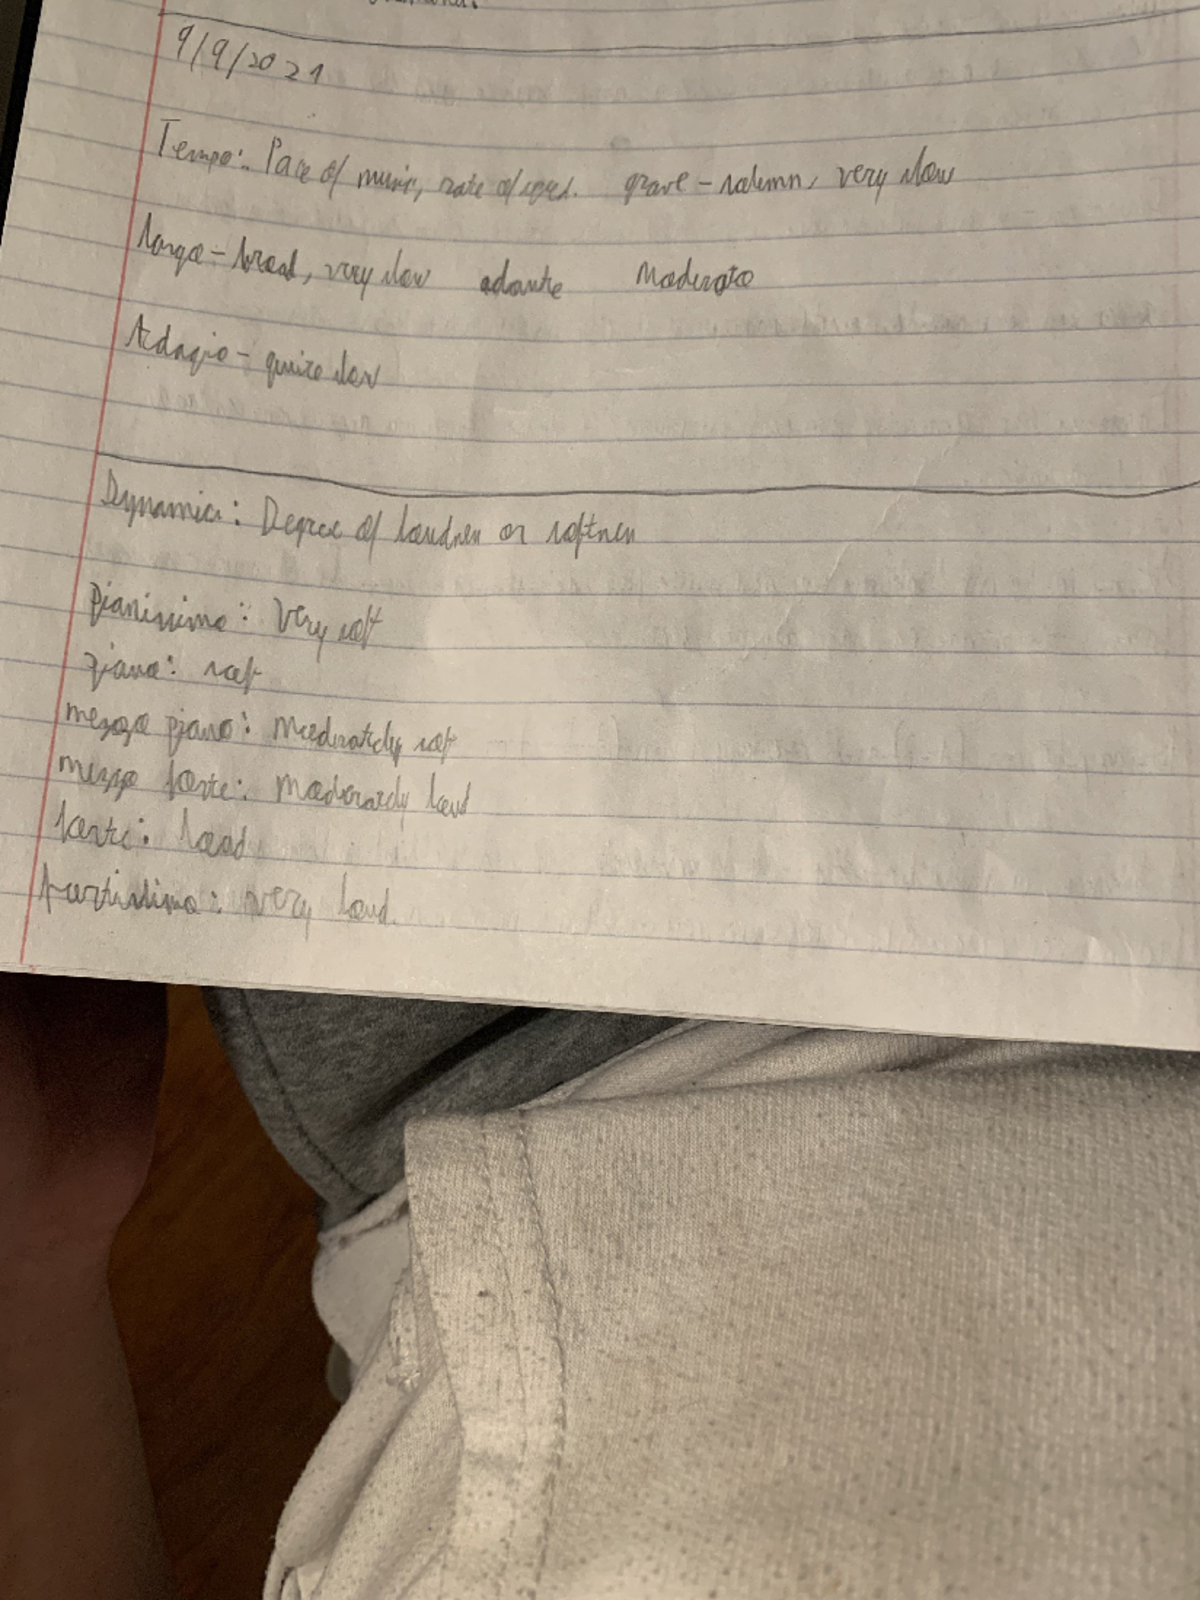 9/9/2021
Tempo: Pace of music, rate of speed. grave - solumn, very slow
largo - broad, very slow adante Moderato
Adagio - quite slow
Dynamics: Degree of loudness or softness
pianissimo: Very soft
piano: soft
mezzo piano: Moderately soft
mezzo forte: Moderately loud
forte: loud
fortissimo: very loud.